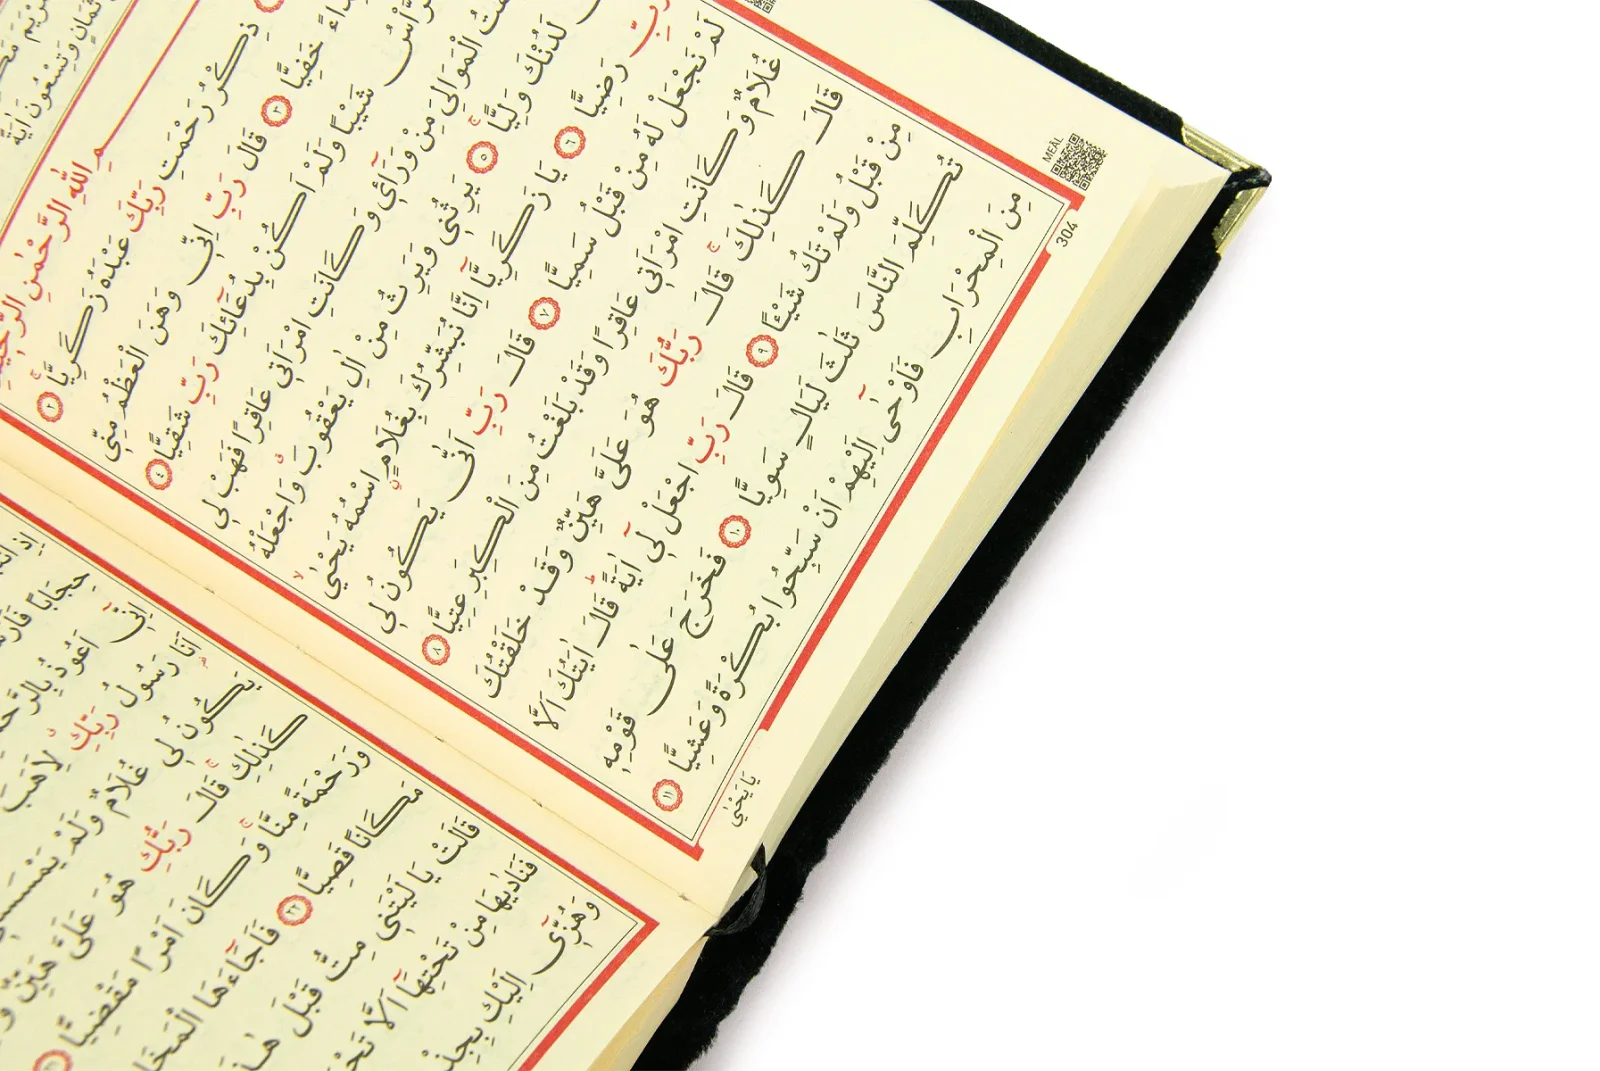 ثَمَانٍ وَتِسْعُونَ اٰيَةً
اللّٰهِ الرَّحْمٰنِ الرَّحٖيمِ
ذِكْرُ رَحْمَتِ رَبِّكَ عَبْدَهُ زَكَرِيَّا ﴿٢﴾
خَفِيًّا ﴿٣﴾ قَالَ رَبِّ اِنّٖى وَهَنَ الْعَظْمُ مِنّٖى
شَيْبًا وَلَمْ اَكُنْ بِدُعَٓائِكَ رَبِّ شَقِيًّا ﴿٤﴾
الْمَوَالِيَ مِنْ وَرَٓائٖى وَكَانَتِ امْرَاَتٖى عَاقِرًا فَهَبْ لٖى
لَدُنْكَ وَلِيًّا ﴿٥﴾ يَرِثُنٖى وَيَرِثُ مِنْ اٰلِ يَعْقُوبَ وَاجْعَلْهُ
رَبِّ رَضِيًّا ﴿٦﴾ يَا زَكَرِيَّٓا اِنَّا نُبَشِّرُكَ بِغُلَامٍ اسْمُهُ يَحْيٰى
لَمْ نَجْعَلْ لَهُ مِنْ قَبْلُ سَمِيًّا ﴿٧﴾ قَالَ رَبِّ اَنّٰى يَكُونُ لٖى
غُلَامٌ وَكَانَتِ امْرَاَتٖى عَاقِرًا وَقَدْ بَلَغْتُ مِنَ الْكِبَرِ عِتِيًّا ﴿٨﴾
قَالَ كَذٰلِكَ قَالَ رَبُّكَ هُوَ عَلَيَّ هَيِّنٌ وَقَدْ خَلَقْتُكَ
مِنْ قَبْلُ وَلَمْ تَكُ شَيْـًٔا ﴿٩﴾ قَالَ رَبِّ اجْعَلْ لٖٓى اٰيَةً قَالَ اٰيَتُكَ اَلَّا
تُكَلِّمَ النَّاسَ ثَلٰثَ لَيَالٍ سَوِيًّا ﴿١٠﴾ فَخَرَجَ عَلٰى قَوْمِهٖ
مِنَ الْمِحْرَابِ فَاَوْحٰٓى اِلَيْهِمْ اَنْ سَبِّحُوا بُكْرَةً وَعَشِيًّا ﴿١١﴾
يَا يَحْيٰى
MEAL
304
حِجَابًا
اِنّٖٓى اَعُوذُ بِالرَّحْمٰنِ
اَنَا رَسُولُ رَبِّكِ لِاَهَبَ
يَكُونُ لٖى غُلَامٌ وَلَمْ
كَذٰلِكِ قَالَ رَبُّكِ هُوَ عَلَيَّ هَيِّنٌ
وَرَحْمَةً مِنَّا وَكَانَ اَمْرًا مَقْضِيًّا
مَكَانًا قَصِيًّا ﴿٢٢﴾ فَاَجَٓاءَهَا
قَالَتْ يَا لَيْتَنٖى مِتُّ قَبْلَ
فَنَادٰيهَا مِنْ تَحْتِهَٓا اَلَّا
وَهُزّٖٓى اِلَيْكِ